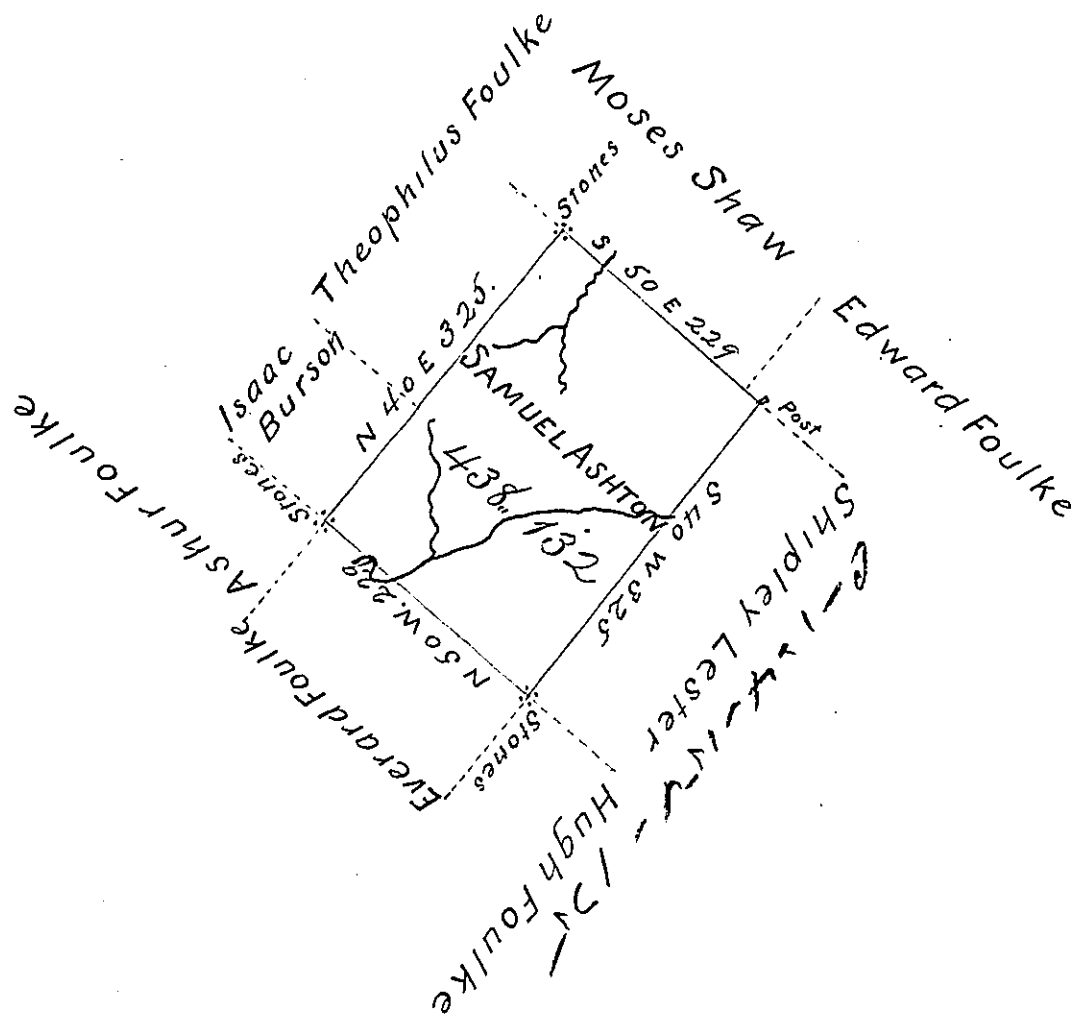 Theophilus Foulke
Moses Shaw
Stones
S 50 E 229
Edward Foulke
Post
Isaac
Burson
N 40 E 325.
SAMUEL ASHTON
438..
132
S 40 W 325
Shipley Lester
Ashur Foulke
Stones
N 50 W. 229
Everard Foulke
Stones
Hugh Foulke